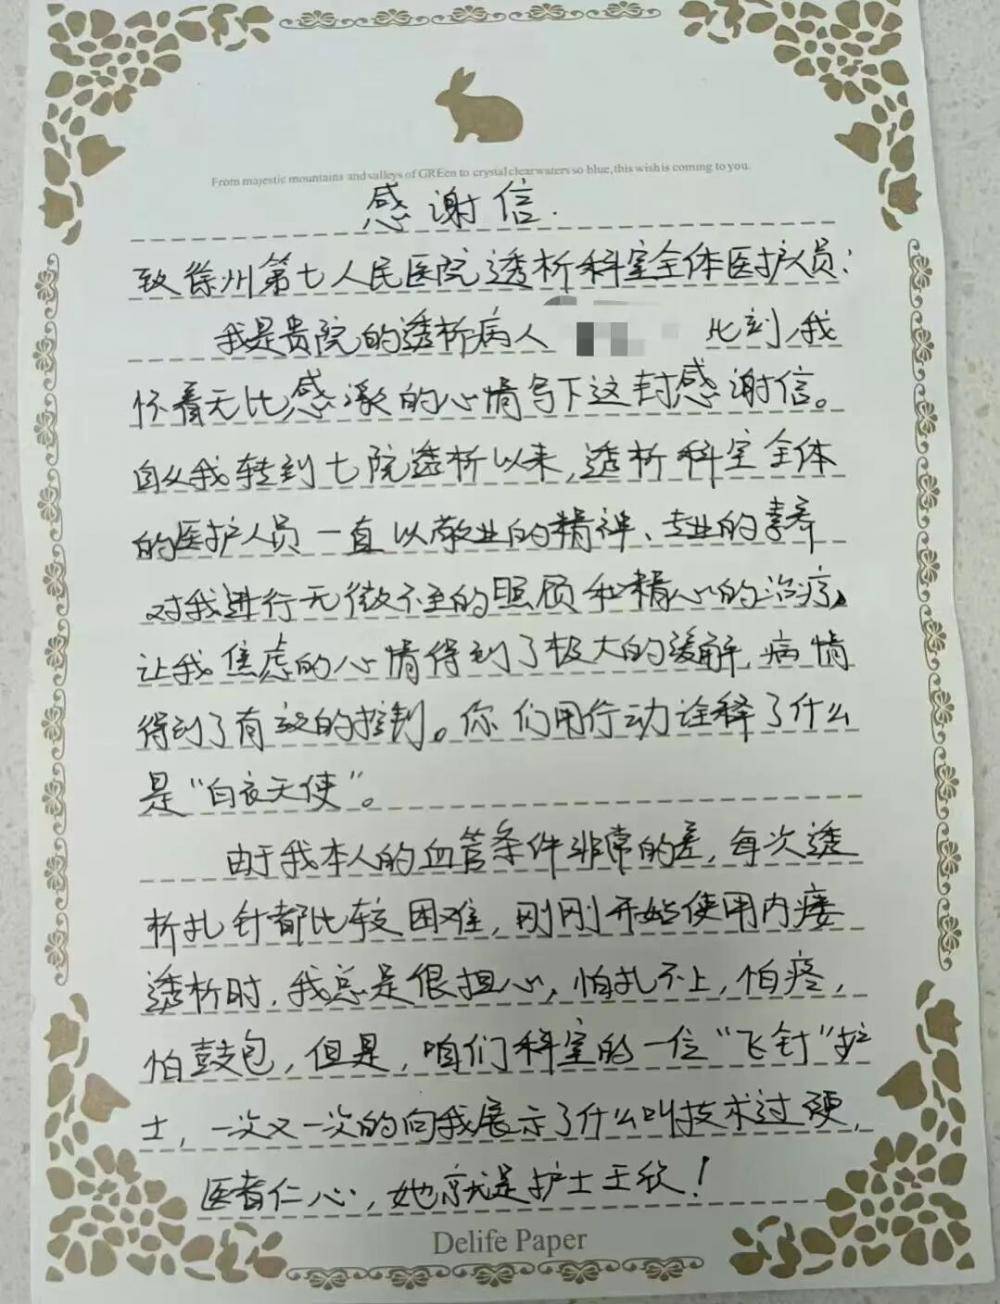 From majestic mountains and valleys of GREen to crystal clear waters so blue, this wish is coming to you.
感谢信.
致徐州第七人民医院透析科室全体医护员:
我是贵院的透析病人 此刻,我
怀着无比感激的心情写下这封感谢信。
自从我转到七院透析以来,透析科室全体
的医护人员一直以敬业的精神、专业的素养
对我进行无微不至的照顾和精心的治疗,
让我焦虑的心情得到了极大的缓解,病情
得到了有效的控制。你们用行动诠释了什么
是“白衣天使”。
由于我本人的血管条件非常的差,每次透
析扎针都比较困难,刚刚开始使用内瘘
透析时,我总是很担心,怕扎不上,怕疼,
怕鼓包,但是,咱们科室的一位“飞针”护
士,一次又一次的向我展示了什么叫技术过硬,
医者仁心,她就是护士王欣!
Delife Paper